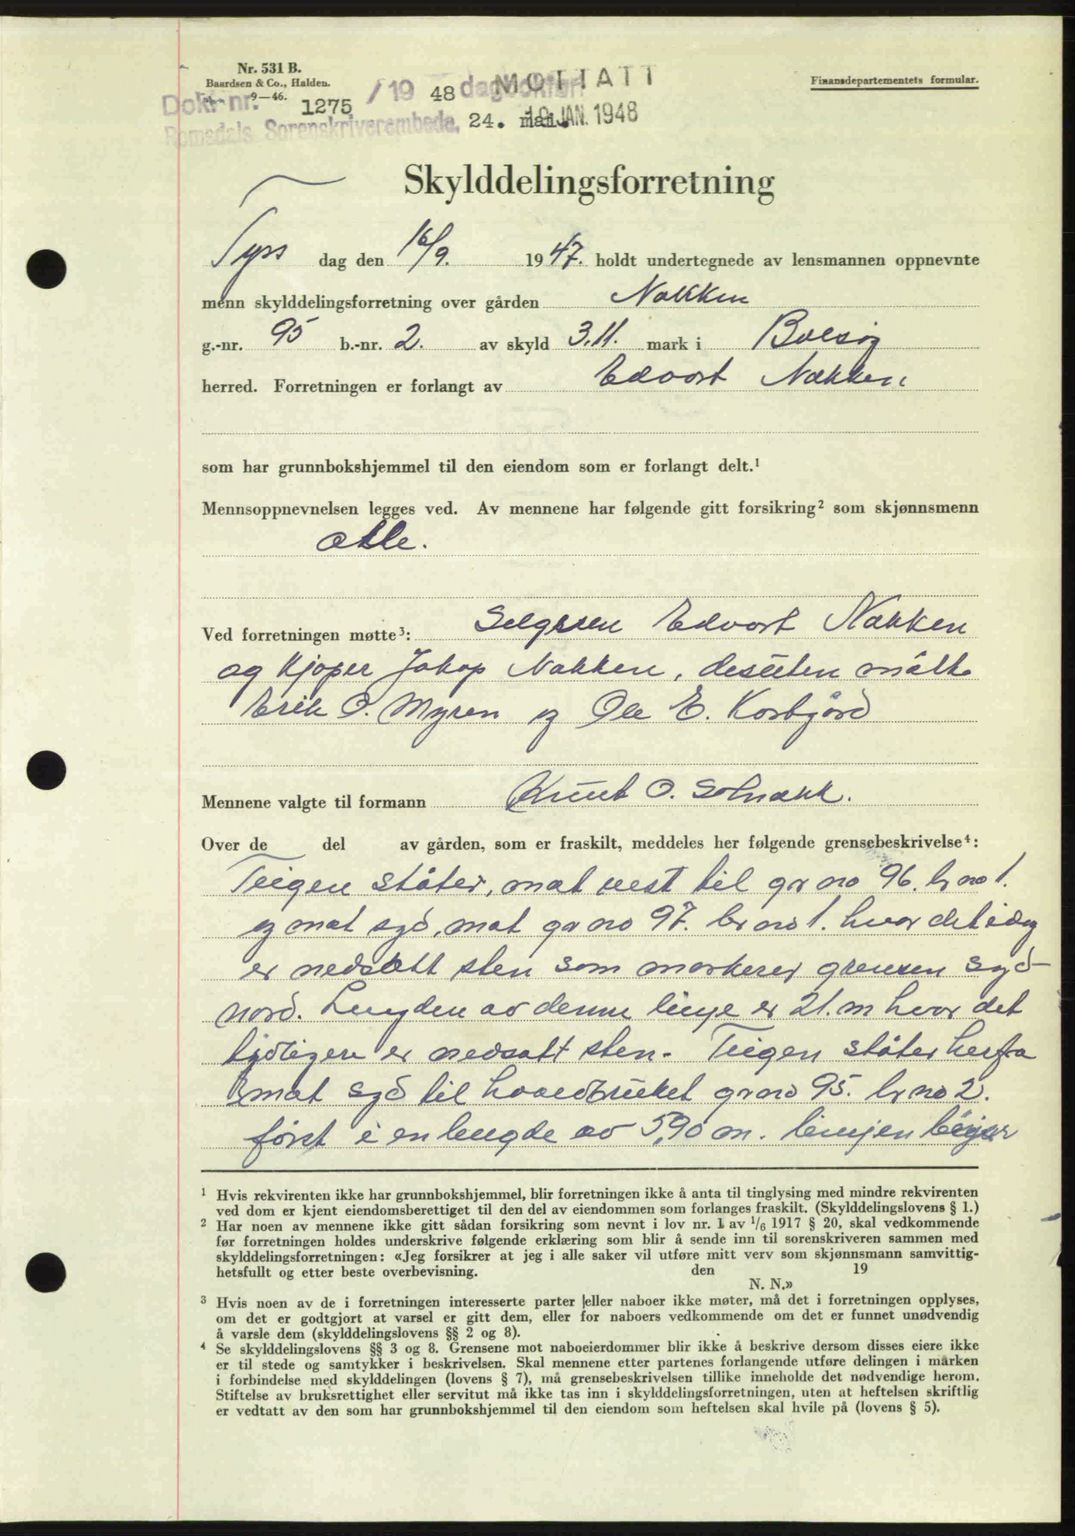 Nr. 531 B.
Baardsen & Co., Halden.
9—46.
Finansdepartementets formular.
MOTTATT
Dok. nr. 1275 / 19 48 dagbokført
Romsdals Sorenskriverembede, 24. mai.
19 JAN. 1948
Skylddelingsforretning
Tyss dag den 16/9. 1947. holdt undertegnede av lensmannen oppnevnte
menn skylddelingsforretning over gården Nakken
g.-nr. 95 b.-nr. 2. av skyld 3.11. mark i Bolsøy
herred. Forretningen er forlangt av Edvart Nakken
som har grunnbokshjemmel til den eiendom som er forlangt delt.¹
Mennsoppnevnelsen legges ved. Av mennene har følgende gitt forsikring² som skjønnsmenn
alle.
Ved forretningen møtte³: Selgeren Edvart Nakken
og kjøper Jakop Nakken, desuten møtte
Erik O. Myren og Ole E. Korsgård
Mennene valgte til formann Knut O. Solnakk.
Over de del av gården, som er fraskilt, meddeles her følgende grensebeskrivelse⁴:
Teigen støter, mot vest til gr no 96. br no 1.
og mot syd, mot gr no 97. br no 1. hvor det idag
er nedsatt sten som markerer grensen syd-
nord. Lengden av denne linje er 21. m hvor det
tydligere er nedsatt sten. Teigen støter herfra
mot syd til hovedbruket gr no 95. br no 2.
først i en lengde av 5,90 m. linjen bøyer
¹ Hvis rekvirenten ikke har grunnbokshjemmel, blir forretningen ikke å anta til tinglysing med mindre rekvirenten
ved dom er kjent eiendomsberettiget til den del av eiendommen som forlanges fraskilt. (Skylddelingslovens § 1.)
² Har noen av mennene ikke gitt sådan forsikring som nevnt i lov nr. 1 av 1/6 1917 § 20, skal vedkommende
før forretningen holdes underskrive følgende erklæring som blir å sende inn til sorenskriveren sammen med
skylddelingsforretningen: «Jeg forsikrer at jeg i alle saker vil utføre mitt verv som skjønnsmann samvittig-
hetsfullt og etter beste overbevisning. den 19
N. N.»
³ Hvis noen av de i forretningen interesserte parter eller naboer ikke møter, må det i forretningen opplyses,
om det er godtgjort at varsel er gitt dem, eller for naboers vedkommende om det er funnet unødvendig
å varsle dem (skylddelingslovens §§ 2 og 8).
⁴ Se skylddelingslovens §§ 3 og 8. Grensene mot naboeierdommer blir ikke å beskrive dersom disses eiere ikke
er til stede og samtykker i beskrivelsen. Skal mennene etter partenes forlangende utføre delingen i marken
i forbindelse med skylddelingen (lovens § 7), må grensebeskrivelsen tillike inneholde det nødvendige herom.
Stiftelse av bruksrettighet eller servitut må ikke tas inn i skylddelingsforretningen, uten at heftelsen skriftlig
er vedtatt av den som har grunnbokshjemmel til den eiendom som heftelsen skal hvile på (lovens § 5).